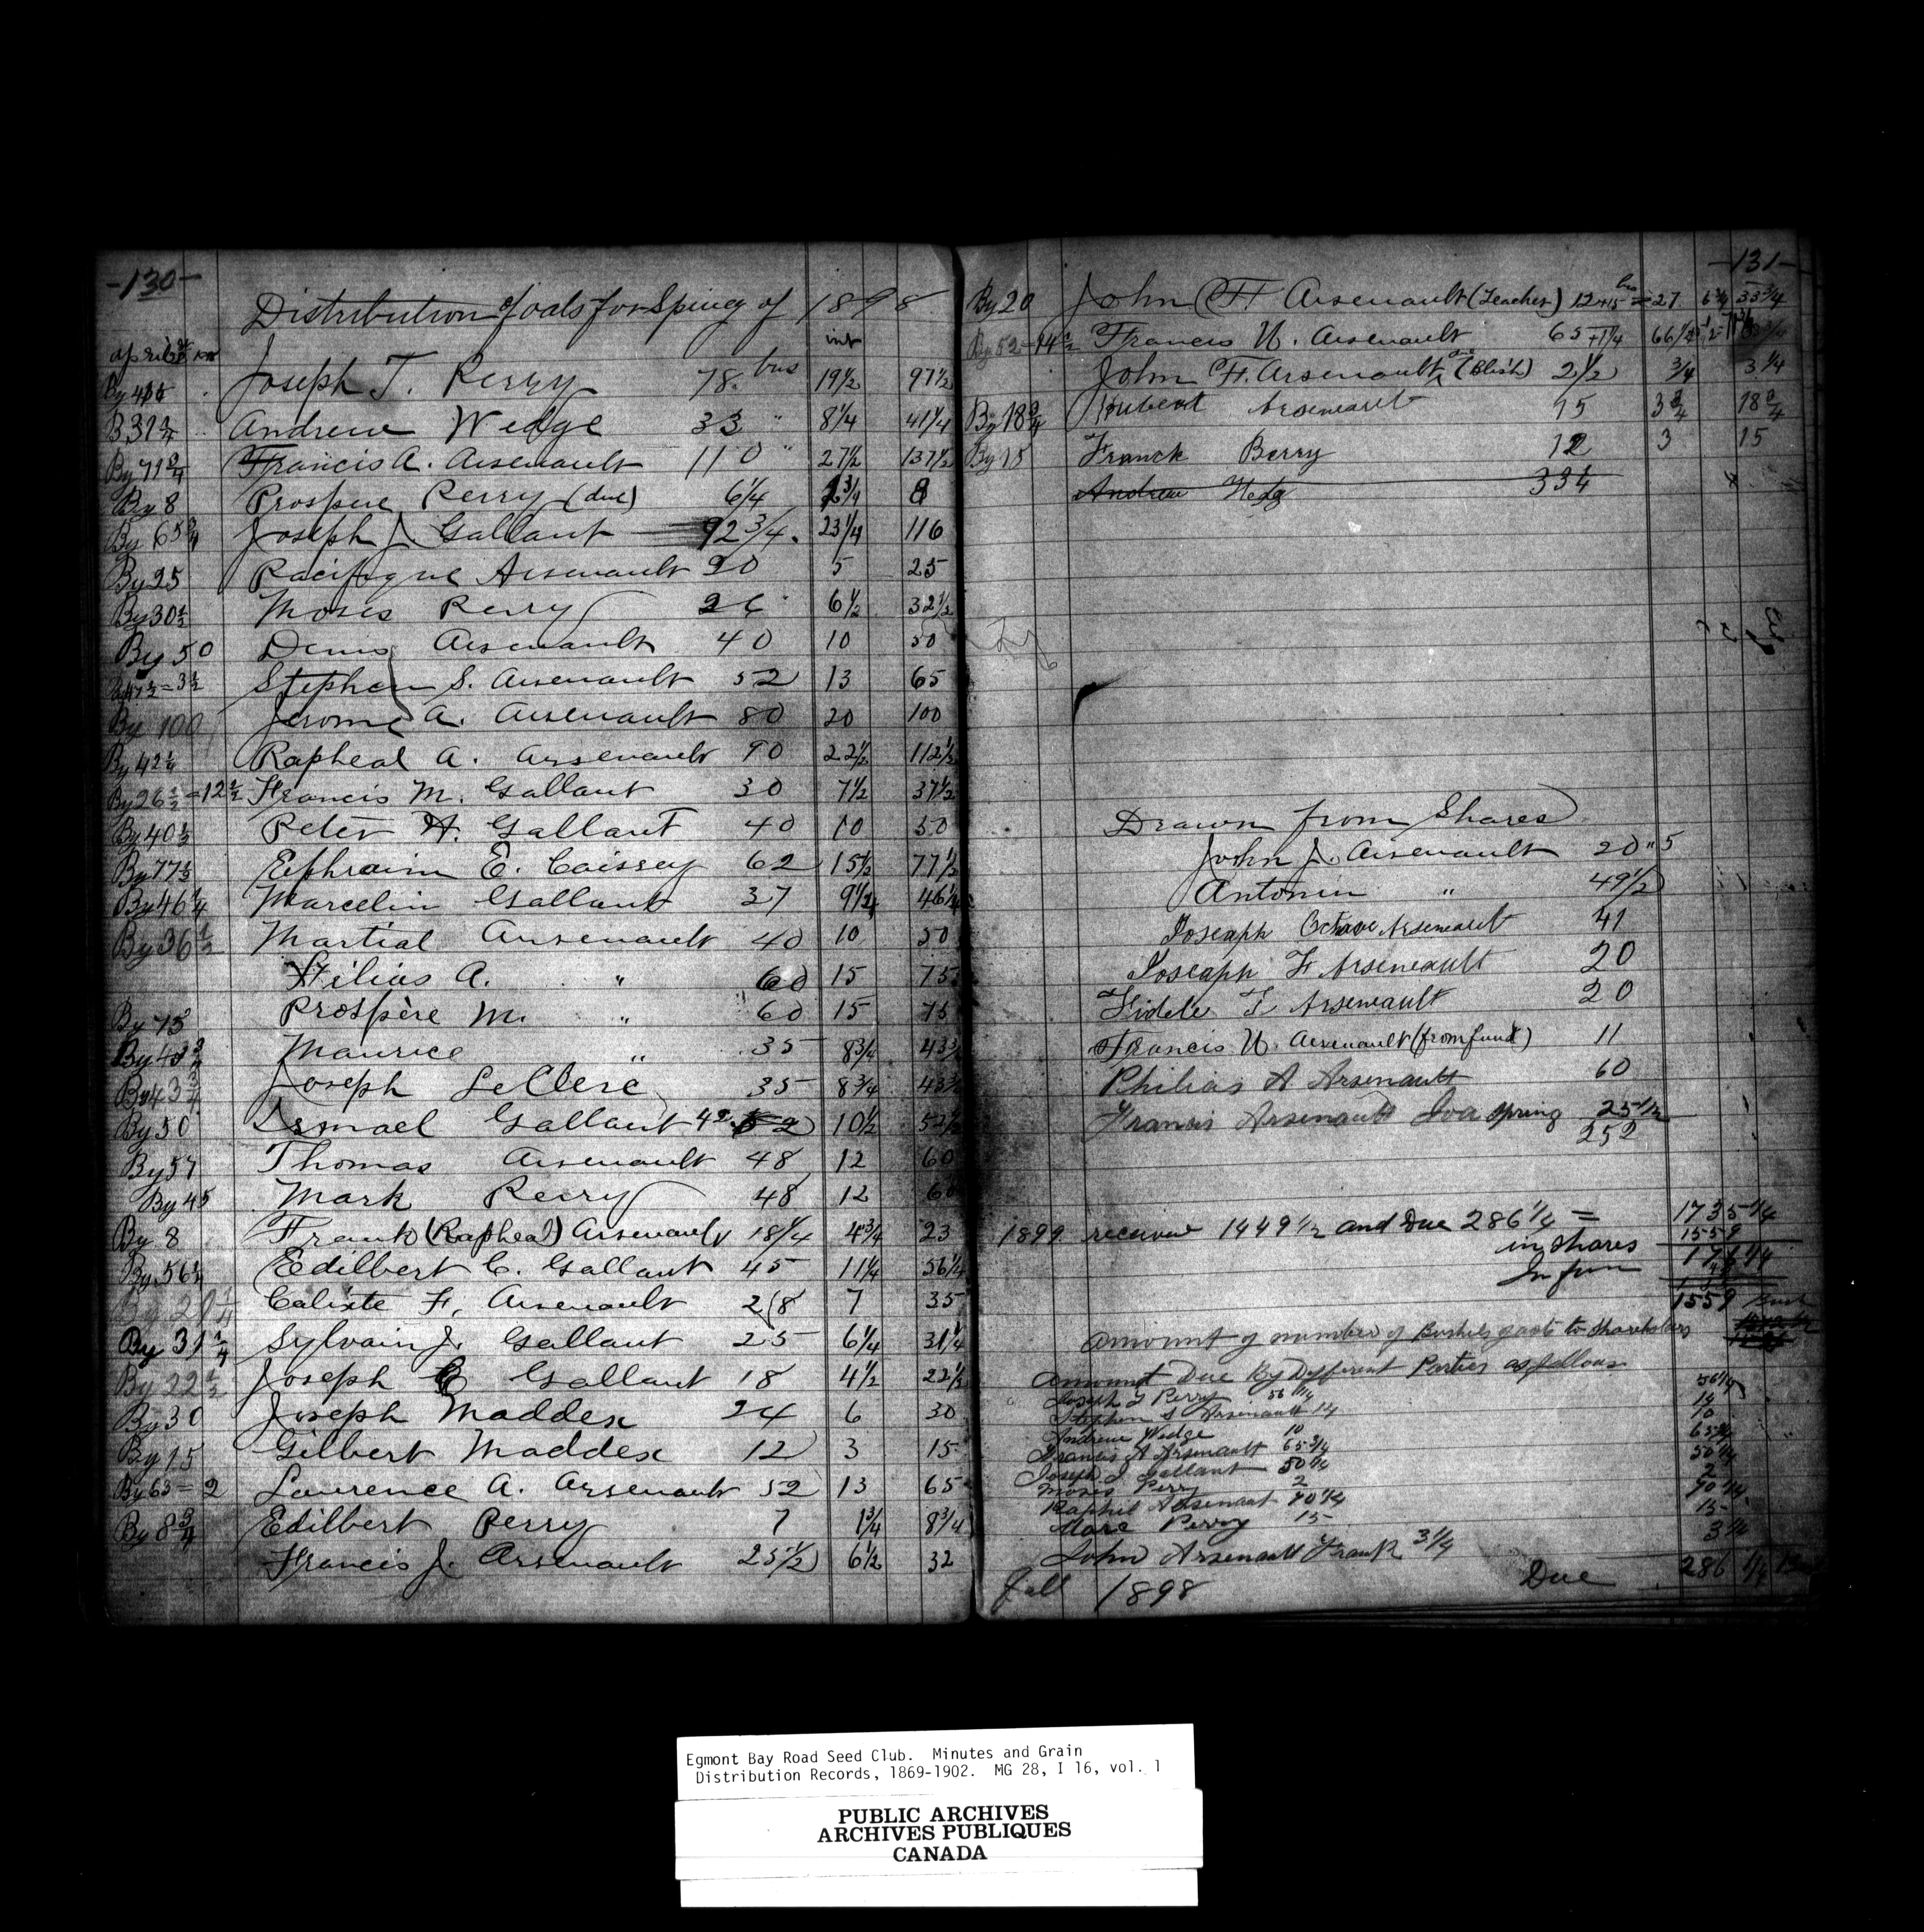 -130-
Distribution of oats for Spring of 1898
int
Joseph T. Perry 78. bus 19½ 97½
B 31¼ Andrew Wedge 33 " 8¼ 41¼
By 71¾ Francis A. Arsenault 110 " 27½ 137½
By 8 Prospere Perry (due) 6¼ 1¾ 8
By 65¾ Joseph J. Gallant 92¾. 23¼ 116
By 25 Pacifique Arsenault 20 5 25
By 30½ Moses Perry 26 6½ 32½
By 50 Denis Arsenault 40 10 50
By 47½=3½ Stephen S. Arsenault 52 13 65
By 100 Jerome A. Arsenault 80 20 100
By 42¼ Rapheal A. Arsenault 90 22½ 112½
By 26½=12½ Francis M. Gallant 30 7½ 37½
By 40½ Peter H. Gallant 40 10 50
By 77½ Ephraim E. Caissey 62 15½ 77½
By 46¼ Marcelin Gallant 37 9¼ 46¼
By 36½ Martial Arsenault 40 10 50
Filias A. " 60 15 75
By 75 Prospère M. " 60 15 75
By 43¾ Maurice " 35 8¾ 43¾
By 43¾ Joseph LeClerc 35 8¾ 43¾
By 50 Ismael Gallant 42 52 10½ 52½
By 57 Thomas Arsenault 48 12 60
By 45 Mark Perry 48 12 60
By 8 Frank (Rapheal) Arsenault 18¼ 4¾ 23
By 56¼ Edilbert C. Gallant 45 11¼ 56¼
Calixte F. Arsenault 28 7 35
By 31¼ Sylvain J. Gallant 25 6¼ 31¼
By 22½ Joseph E Gallant 18 4½ 22½
By 30 Joseph Maddex 24 6 30
By 15 Gilbert Maddex 12 3 15
By 63=2 Laurence A. Arsenault 52 13 65
By 8¾ Edilbert Perry 7 1¾ 8¾
Francis J. Arsenault 25½ 6½ 32
-131-
By 20 John F. Arsenault (Teacher) 12+15 bus = 27 6¾ 33¾
Francis U. Arsenault 65+1¼ 66¼
John F. Arsenault due 2½ ¾ 3¼
By 18¾ Hubert Arseneault 15 3¾ 18¾
By 15 Franck Berry 12 3 15
Andrew Wedg 33¼
Drawn from Shares
John J. Arsenault 20"5
Antonin " 49½
Joseaph Octave Arseneault 41
Joseaph F Arseneault 20
Fidele T Arseneault 20
Francis U. Arsenault (from fund) 11
Philias A Arsenault 60
Francis Arsenault Spring 25½
252
1899 received 1449½ and Due 286¼ = 1735¼
1559
in shares 176¼
1559 Bush
Amount of number of Bushels of oats to shareholders
Amount Due By Different Parties as follows
Joseph T Perry 56¼ 56¼
Stephen S Arsenault 14 14
Andrew Wedge 10 10
Francis A Arsenault 65¾ 65¾
Joseph J Gallant 50¼ 50¼
Moses Perry 2 2
Raphel Arsenaut 70¼ 70¼
Marc Perry 15 15
John Arsenault Frank 3¼ 3¼
Fall 1898 Due 286 ¼
Egmont Bay Road Seed Club. Minutes and Grain
Distribution Records, 1869-1902. MG 28, I 16, vol. 1
PUBLIC ARCHIVES
ARCHIVES PUBLIQUES
CANADA